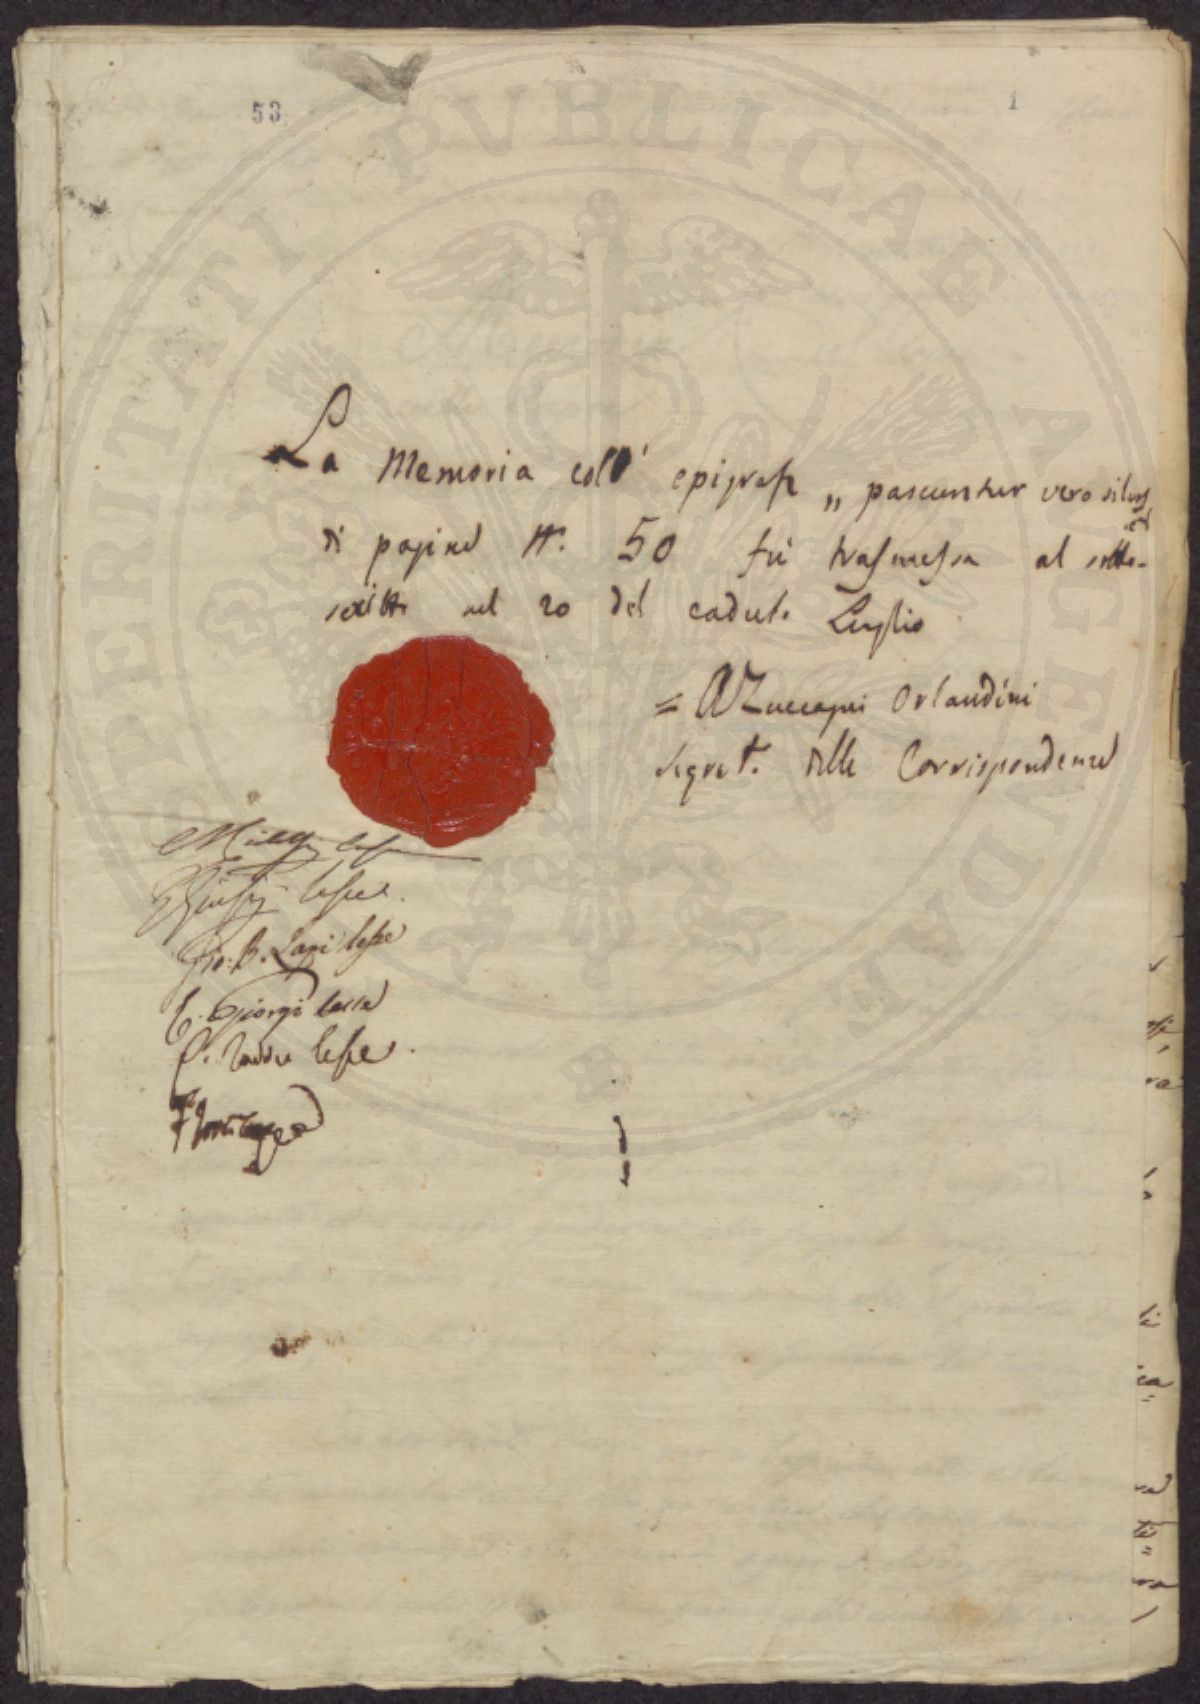 53
1
PROSPERITATI PVBLICAE AVGENDAE
La Memoria coll' epigrafe „ pascuntur vero silvas
di pagine N. 50 fù trasmessa al sotto-
scritto nel 20 del caduto Luglio
= AZuccagni Orlandini
Segret. delle Corrispondenze
lesse.
Gio. B. Lapi lesse
E. Giorgi lesse
P. Taddei lesse.